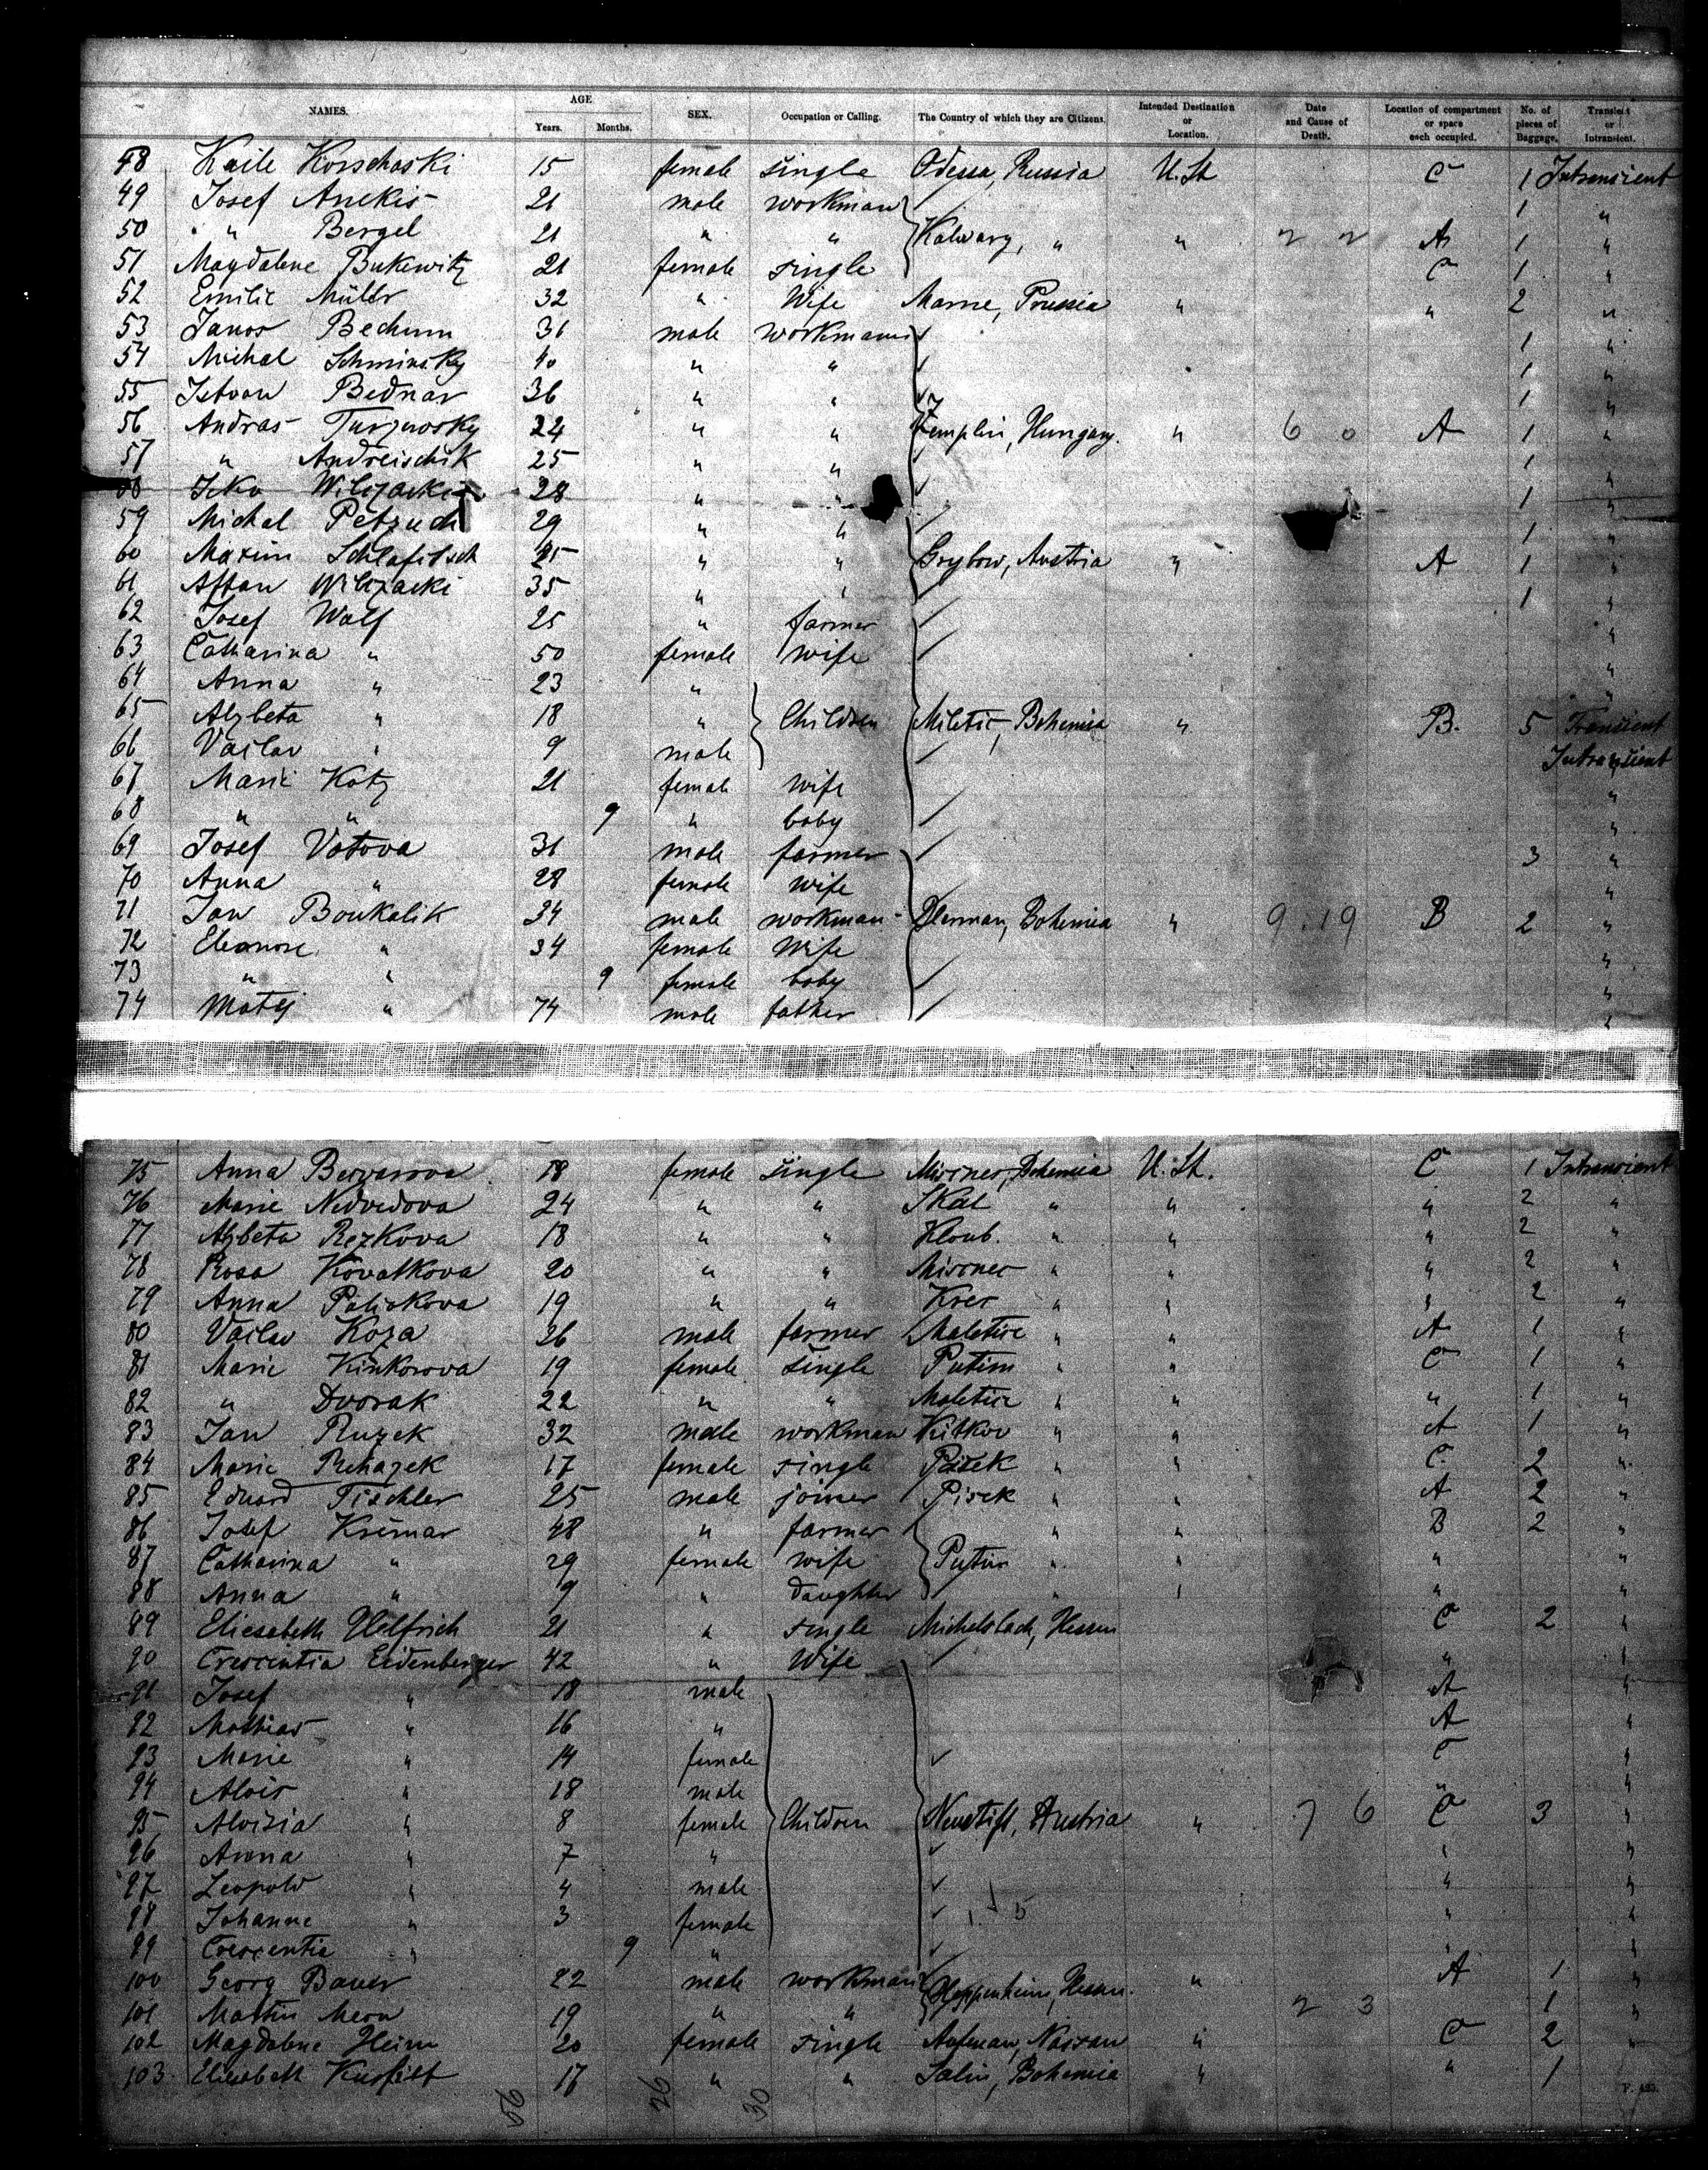 NAMES. AGE Years. Months. SEX. Occupation or Calling. The Country of which they are Citizens. Intended Destination or Location. Date and Cause of Death. Location of compartment or space each occupied. No. of pieces of Baggage. Transient or Intransient.
48 Kaile Korschaski 15 female single Odessa, Russia U. St C 1 Intransient
49 Josef Anekis 21 male workman 1 "
50 " Bergel 21 " " Kalwary, " " 2 2 A 1 "
51 Magdalene Bukewitz 21 female single C 1 "
52 Emilie Müller 32 " Wife Marne, Prussia " " 2 "
53 Janos Bechum 31 male workman 1 "
54 Michal Schminsky 40 " " 1 "
55 Istvan Bednar 36 " " 1 "
56 Andras Turzwosky 24 " " Zemplin, Hungary. " 6 0 A 1 "
57 " Andreischik 25 " " 1 "
58 Icko Wilczacki 28 " " 1 "
59 Michal Petzuch 29 " " 1 "
60 Maxim Schlafitsch 25 " " Grybow, Austria " A 1 "
61 Affan Wilczacki 35 " " 1 "
62 Josef Wolf 25 " farmer "
63 Catharina " 50 female wife "
64 Anna " 23 " "
65 Alzbeta " 18 " Children Miletic, Bohemia " B. 5 Transient
66 Vaclav " 9 male Intransient
67 Marie Kotz 21 female wife "
68 " " 9 " baby "
69 Josef Votova 31 male farmer 3 "
70 Anna " 28 female wife "
71 Jan Boukalik 34 male workman Bohemia " 9 . 19 B 2 "
72 Eleonore " 34 female Wife "
73 " " 9 female baby "
74 Matej " 74 male father "
75 Anna 18 female single Mirrner, Bohemia U. St. C 1 Intransient
76 Marie Nedvedova 24 " " Skal " " " 2 "
77 Alzbeta Rezkova 18 " " Kloub. " " " 2 "
78 Rosa Kovatkova 20 " " Mirrner " " " 2 "
79 Anna Paliokova 19 " " Krer " " " 2 "
80 Vaclav Koza 26 male farmer Maletice " " A 1 "
81 Marie Kinkorova 19 female single Putim " " C 1 "
82 " Dvorak 22 " " Maletice " " " 1 "
83 Jan Ruzek 32 male workman Kitkov " " A 1 "
84 Marie Rehazek 17 female single Pisek " " C. 2 "
85 Eduard Tischler 25 male joiner Pisek " " A 2 "
86 Josef Kresmar 48 " farmer " " B 2 "
87 Catharina " 29 female wife Putim " " " "
88 Anna " 9 " daughter " " " "
89 Eliesabeth Helfrich 21 " single Michelbach, Hessen C 2 "
90 Crescintia Eidenberger 42 " Wife " "
91 Josef " 18 male 8 A "
92 Mathias " 16 " A "
93 Marie " 14 female C "
94 Alois " 18 male " "
95 Aloisia " 8 female Children Neustift, Austria " 7 6 C 3 "
96 Anna " 7 " " "
97 Leopold " 4 male " "
98 Johanne " 3 female 5 " "
99 Crescentie " 9 " " "
100 Georg Bauer 22 male workman Heppenheim, Hessen. " A 1 "
101 Martin Mern 19 " " 2 3 1 "
102 Magdalene Heim 20 female single Nassau " C 2 "
103. Elisabeth Kussfilt 17 " " Salin, Bohemia " " 1
26 30